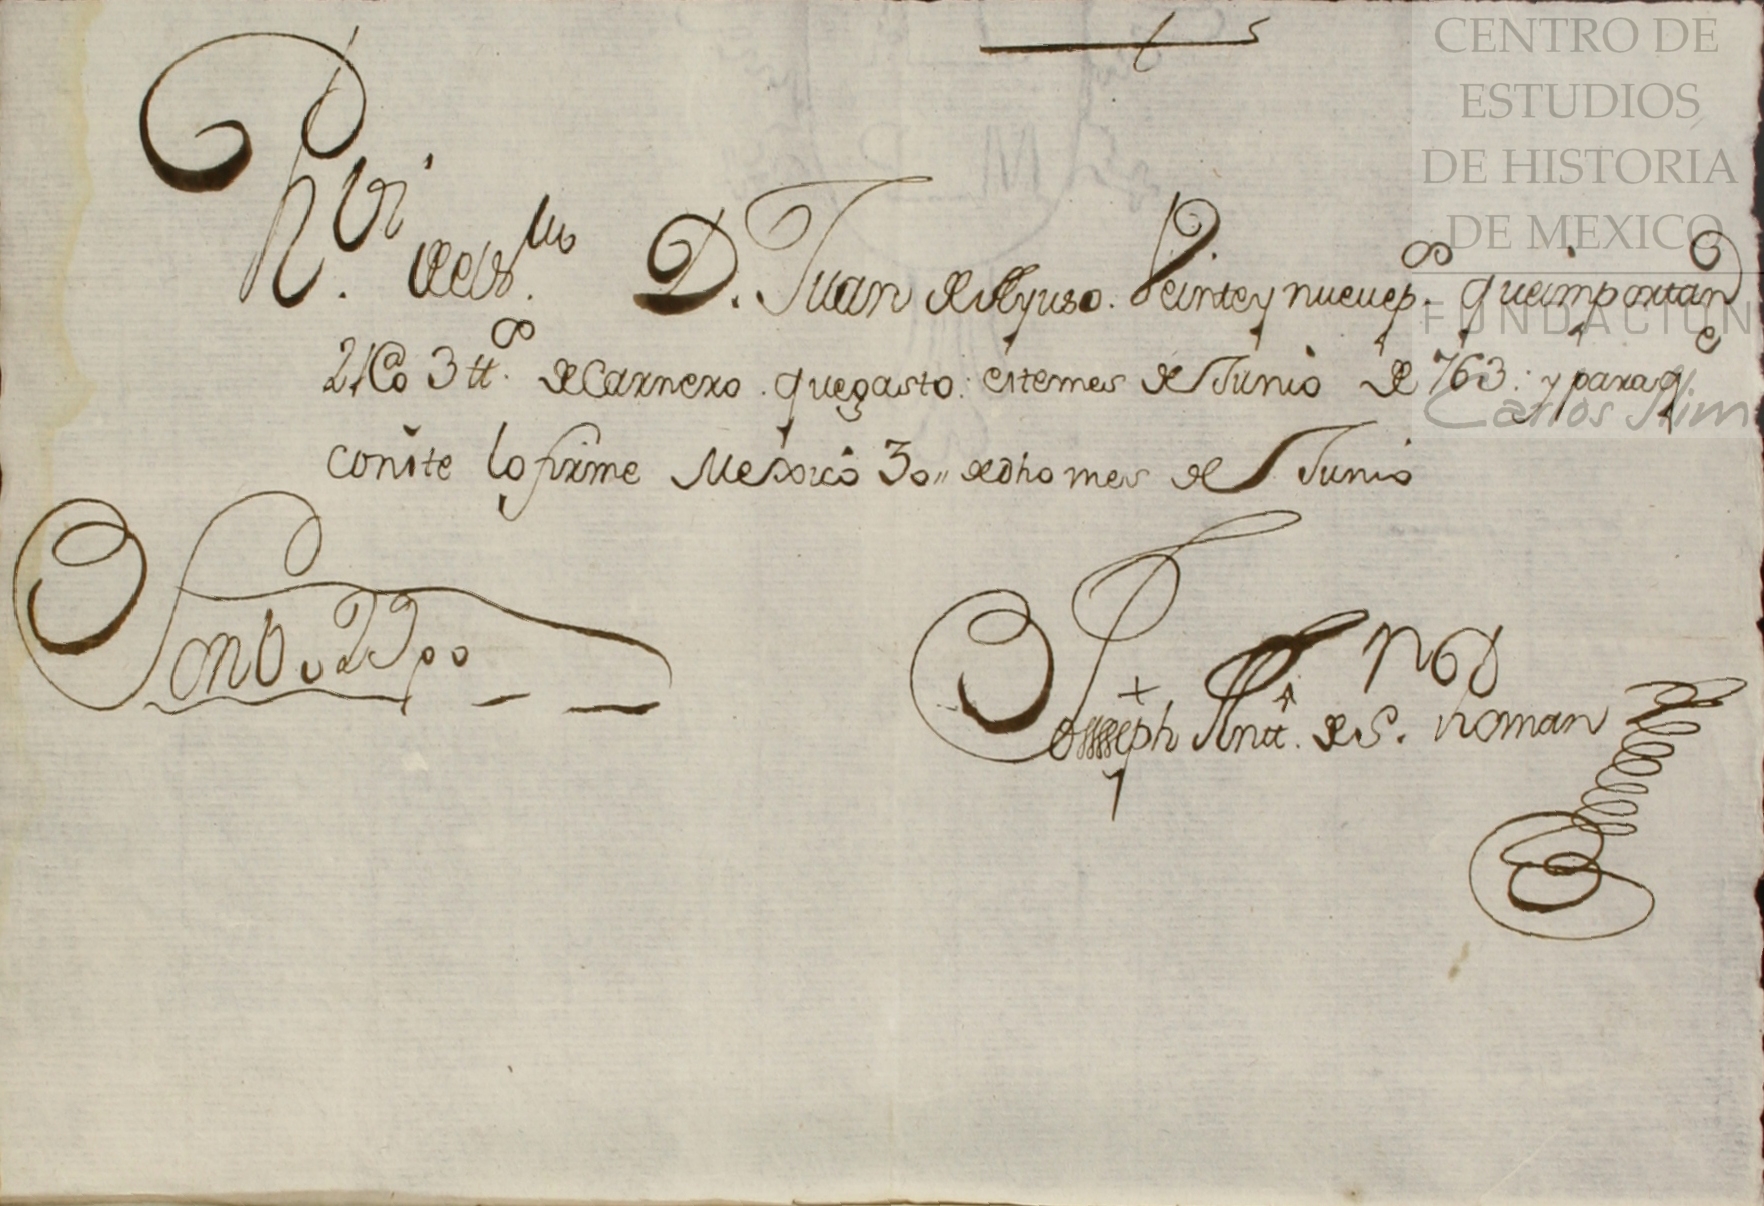 CENTRO DE
ESTUDIOS
DE HISTORIA
DE MEXICO
FUNDACIÓN
Carlos Slim
Rvi. del Sr. D. Juan de Ayuso. Veinte y nueve ps. que importan
21@ 3 tt.s de Carnero. que gasto: este mes de Junio de 763: y para q.e
conste lo firme Mexico 30,, de dho mes de Junio
Son 29 p
Joseph Antt.o de S. Roman